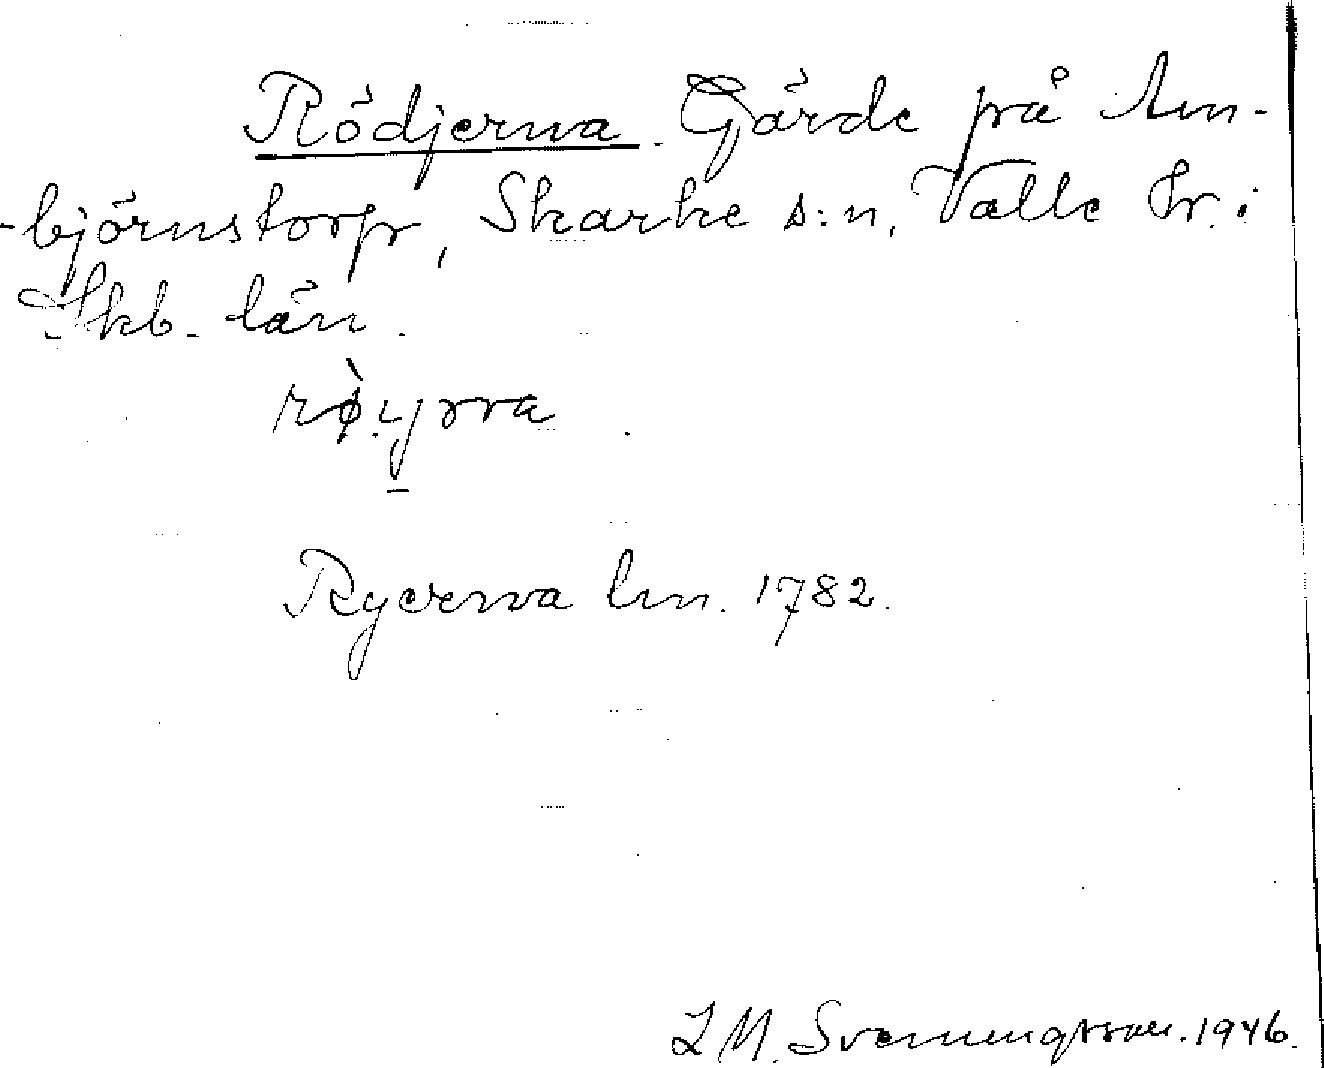 Rödjerna. Gärde på Am-
-björnstorp, Skarke s:n, Valle hr. i
Skb. län.
Ryerna lm. 1782.
L M. Svenungsson. 1946.